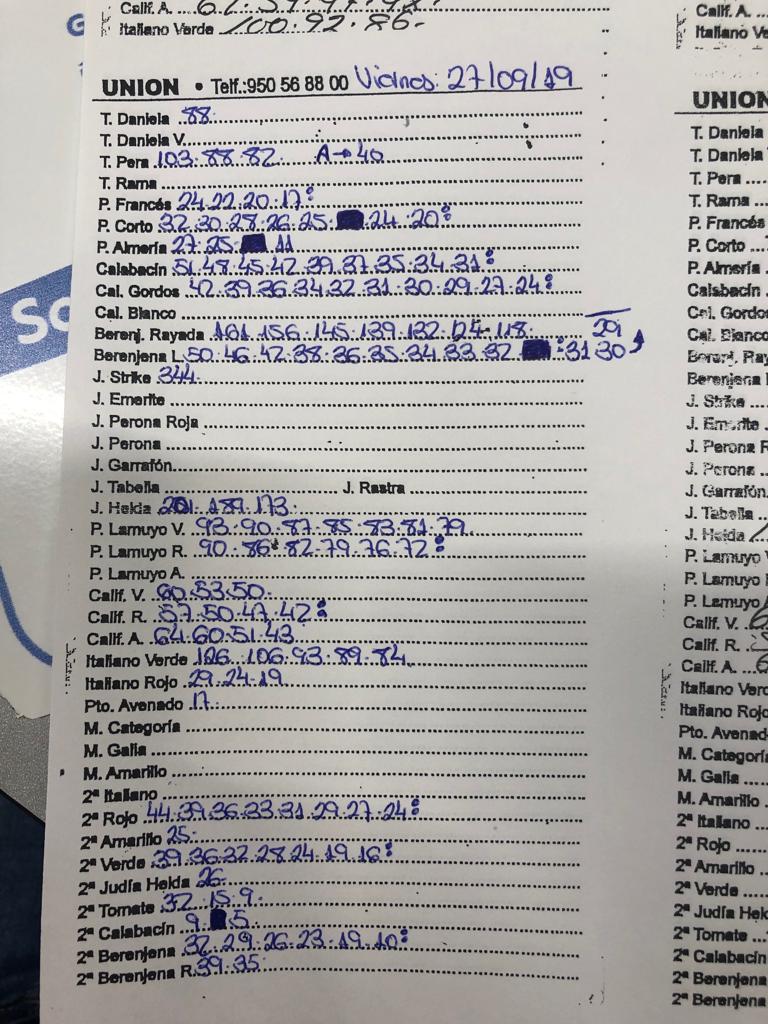 Calif. A.
Italiano Verde 100.92.86.
UNION • Telf.:950 56 88 00 Viernes: 27/09/19
T. Daniela 88.
T. Daniela V.
T. Pera 103.88.82. A→40
T. Rama
P. Francés 24.22.20.17:
P. Corto 32.30.28.26.25. 24.20:
P. Almería 27.25. 11
Calabacín 51.48.45.42.39.37.35.34.31:
Cal. Gordos 42.39.36.34.32.31.30.29.27.24:
Cal. Blanco
Berenj. Rayada 161.156.145.139.132.124.118. 29
Berenjena L. 50.46.42.38.36.35.34.33.32 :31.30
J. Strike 344.
J. Emerite
J. Perona Roja
J. Perona
J. Garrafón
J. Tabella J. Rastra
J. Helda 201.189.173.
P. Lamuyo V. 93.90.87.85.83.81.79
P. Lamuyo R. 90.86.82.79.76.72:
P. Lamuyo A.
Calif. V. 60.53.50.
Calif. R. 57.50.47.42:
Calif. A. 64.60.51.43
Italiano Verde 126.106.93.89.84
Italiano Rojo 29.24.19
Pto. Avenado 17.
M. Categoría
M. Galia
M. Amarillo
2ª Italiano
2ª Rojo 44.39.36.33.31.29.27.24:
2ª Amarillo 25.
2ª Verde 39.36.32.28.24.19.16:
2ª Judía Helda 26.
2ª Tomate 32.15.9.
2ª Calabacín 9. 5.
2ª Berenjena 32.29.26.23.19.10:
2ª Berenjena R. 39.35.
Calif. A.
Italiano Ve
UNION
T. Daniela
T. Daniela
T. Pera
T. Rama
P. Francés
P. Corto
P. Almería
Calabacín
Cal. Gordos
Cal. Blanco
Berenj. Ray
Berenjena
J. Strike
J. Emerite
J. Perona R
J. Perona
J. Garrafón
J. Tabella
J. Helda
P. Lamuyo
P. Lamuyo
P. Lamuyo
Calif. V.
Calif. R.
Calif. A.
Italiano Verd
Italiano Rojo
Pto. Avenad
M. Categorí
M. Galia
M. Amarillo
2ª Italiano
2ª Rojo
2ª Amarillo
2ª Verde
2ª Judía Held
2ª Tomate
2ª Calabacín
2ª Berenjena
2ª Berenjena